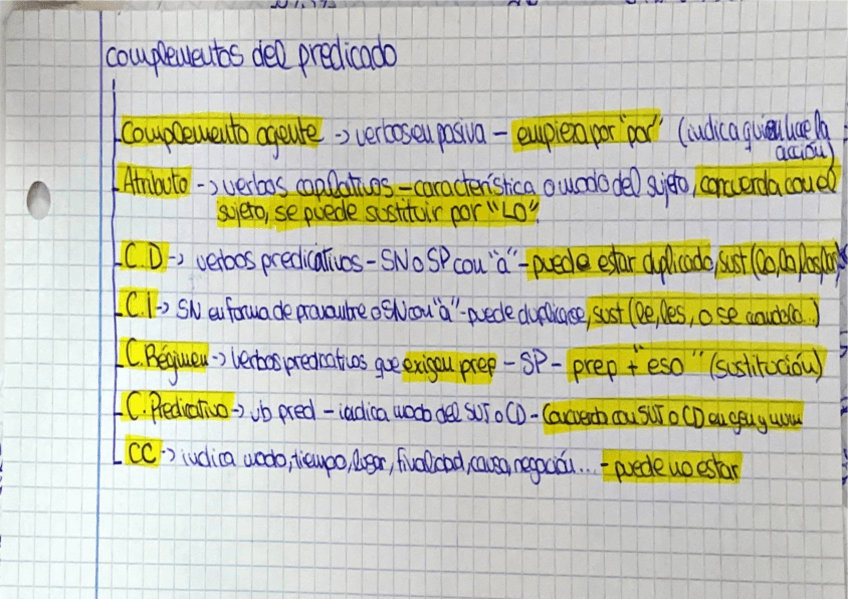 complementos del predicado
Complemento agente -> verbos en pasiva - empieza por "por" (indica quien hace la
acción)
Atributo -> verbos copilativos - característica o modo del sujeto, concuerda con el
sujeto, se puede sustituir por "LO"
C.D -> verbos predicativos - SN o SP con "a" - puede estar duplicado, sust (lo, la, los, las)
C.I -> SN en forma de pronombre o SN con "a" - puede duplicarse, sust (le, les, o se cuando...)
C.Régimen -> verbos predicativos que exigen prep - SP - prep + "eso" (sustitución)
C.Predicativo -> vb pred - indica modo del SUJ o CD - Concuerda con SUJ o CD en gen y num
CC -> indica modo, tiempo, lugar, finalidad, causa, negación... - puede no estar